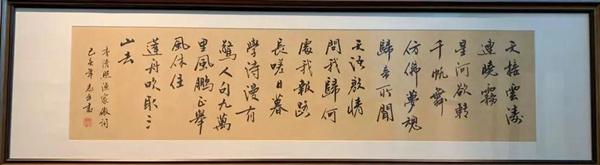 天接雲濤
連曉霧
星河欲轉
千帆舞
仿佛夢魂
歸帝所聞
天語殷情
問我歸何
處我報路
長嗟日暮
學詩漫有
驚人句九萬
里風鵬正舉
風休住
蓬舟吹取三
山去
李清照漁家傲詞
己亥年書